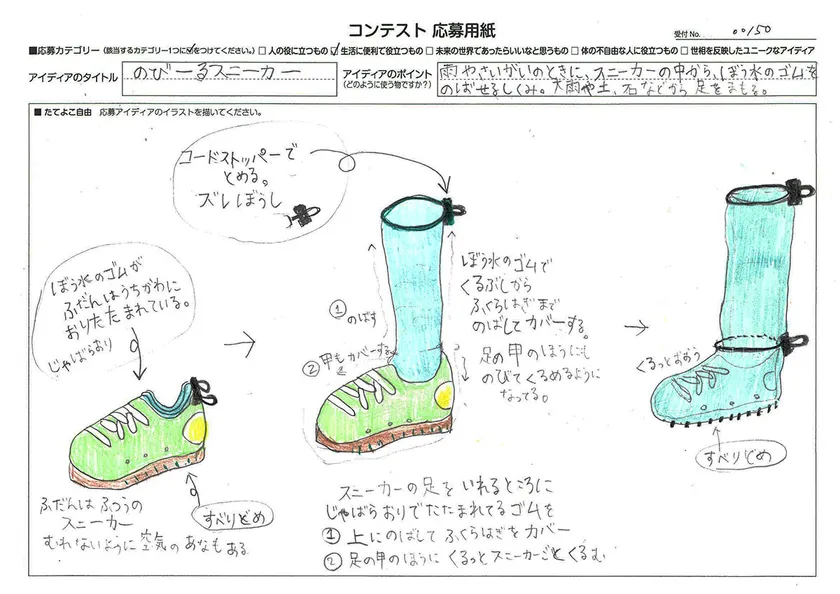 コンテスト 応募用紙
受付No. 00150
■応募カテゴリー（該当するカテゴリー1つに✓をつけてください。） □ 人の役に立つもの ☑ 生活に便利で役立つもの □ 未来の世界であったらいいなと思うもの □ 体の不自由な人に役立つもの □ 世相を反映したユニークなアイディア
アイディアのタイトル
のびーるスニーカー
アイディアのポイント
（どのように使う物ですか？）
雨やさいがいのときに、スニーカーの中から、ぼう水のゴムを
のばせるしくみ。大雨や土、石などから足をまもる。
■ たてよこ自由 応募アイディアのイラストを描いてください。
コードストッパーで
とめる。
ズレぼうし
ぼう水のゴムが
ふだんはうちがわに
おりたたまれている。
じゃばらおり
①のばす
②甲もカバーする
ぼう水のゴムで
くるぶしから
ふくらはぎまで
のばしてカバーする。
足の甲のほうにも
のびてくるめるように
なってる。
くるっとおおう
すべりどめ
すべりどめ
ふだんはふつうの
スニーカー
むれないように空気のあなもある
スニーカーの足をいれるところに
じゃばらおりでたたまれてるゴムを
①上にのばしてふくらはぎをカバー
②足の甲のほうにくるっとスニーカーごとくるむ